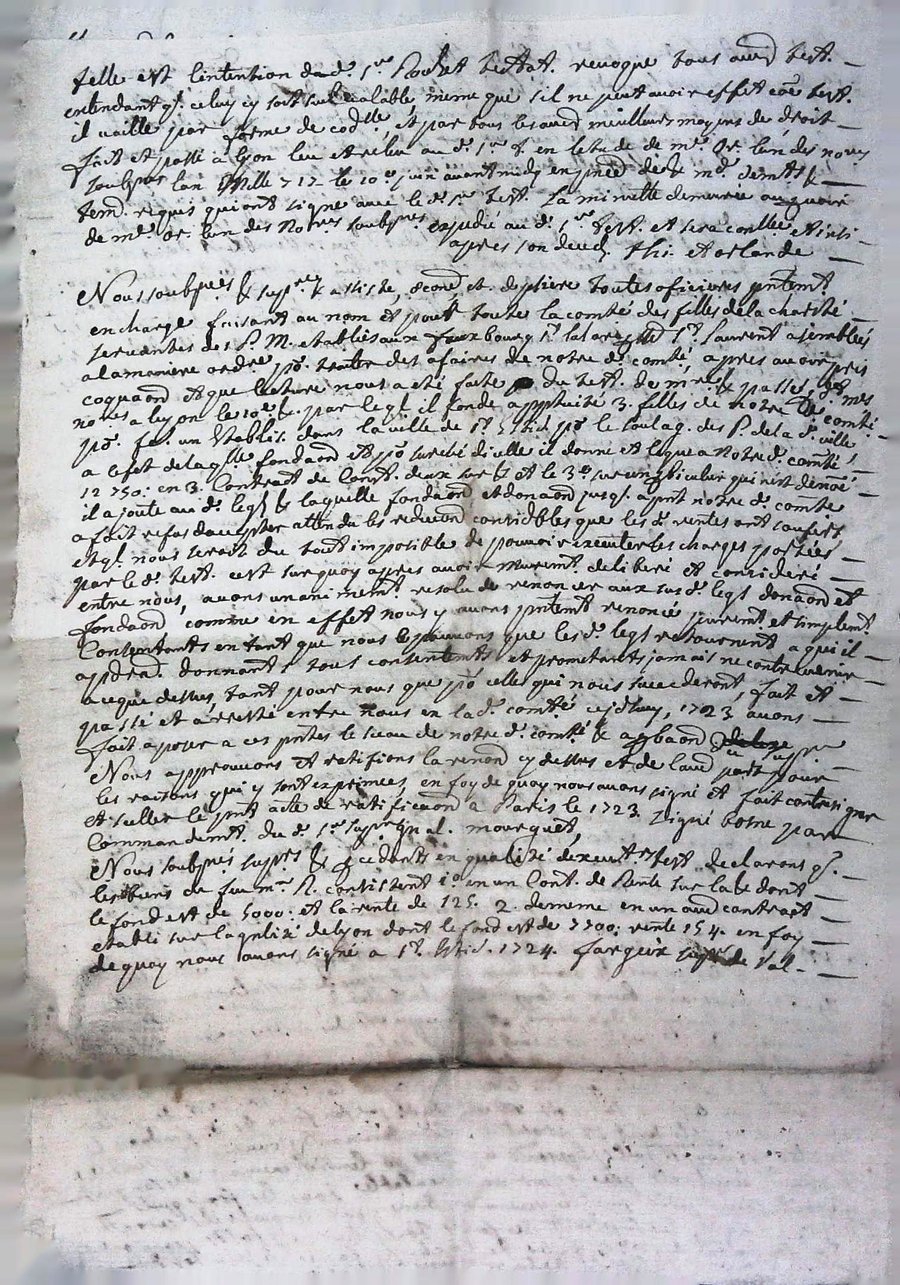 telle est l'intention du d. s.r Rochet testat. revoque tous aud test.
entendant q. celuy cy soit seul valable meme que s'il ne peut avoir effet coe test.
il vaille par forme de cod.lle, et par tous les aud meilleurs moyens de droit
fait et passé à Lyon leu et releu au d. s.r en letude de m.e Or. lun des no.res
soubsnés lan Mille 712 le 10.e juin avant midy en
temd. requis qui ont signé avec le d. s.r test. La minutte demeurée au pouvoir
de m.e Or. lun des Not.res soubsnés expedié au d. s.r test. et sera contllée
apres son decez. Thi. et orlande
Nous soubsnés assiste, econe, et depsiere toutes oficieres pntemt
en charge faisant au nom et pour toute la comté des filles de la charité
servantes des P. M. etablies aux fauxbourg s.t Lazare, s.t Laurent assemblées
a la maniere ordre p.r traiter des afaires de notre d. comté, apres avoir pris
coquaond et que lecture nous a eté faite du test. de m.r R. & passé
nores a Lyon le 10.e & par leql. il fonde a pptuité 3. filles de notre d. comté
p.r fai. un etabliss. dans la ville de s.t p.r le soulag. des P. de la d. ville
a l'efet de laqlle fondaond et p.r subcé dicelle il donne et legue a notre d. comté
12750: en 3. Contract de const. deux sur & et le 3.e sur un pticulier qui n'est denomé
il ajoute au d. legs & laquelle fondaond et donaond jusq. a pnt notre d. comté
a fait refus daccepter attendu les reduond considbles que les d. rentes ont soufert,
et ql. nous seroit du tout imposible de pouvoir executer les charges portées
par le d. test. cest sur quoy apres avoir murement deliberé et consideré
entre nous, avons unanimemt resolu de renoncer aux susd. legs donaond et
fondaond comme en effet nous y avons pntemt renoncé purem.t et simplemt.
Consentants en tant que nous le pouvons que les d. legs retournent a qui il
apdra. donnants tous consentemts et prometants jamais ne contrevenir
a ce que dessus, tant pour nous que p.r celle qui nous succederont, fait et
passé et arresté entre nous en la d. comté cejdhuy, 1723 avons
fait aposer a ces pntes le sceau de notre d. comté & aprbaond
Nous approuvons et ratifions la renond cy dessus et de laud part pour
les raisons qui y sont exprimées, en foy de quoy nous avons signé et fait contresigner
et seller le pnt acte de ratificaond a Paris le 1723. Signé bonne par
Commandemt. du d. s.r supr gnal. mourguet,
Nous soubsnés supres & pcedants en qualité dexecutr test. declarons q.
les biens de feu m.r R. consistent 1.o en un Cont. de Rente sur la & dont
le fond est de 5000: et la rente de 125. 2. de meme en un aud contract
etabli sur la gnlité de Lyon dont le fond est de 7700: rente 154. en foy
de quoy nous avons signé a s.t 1724. Fargeix supr de Val.